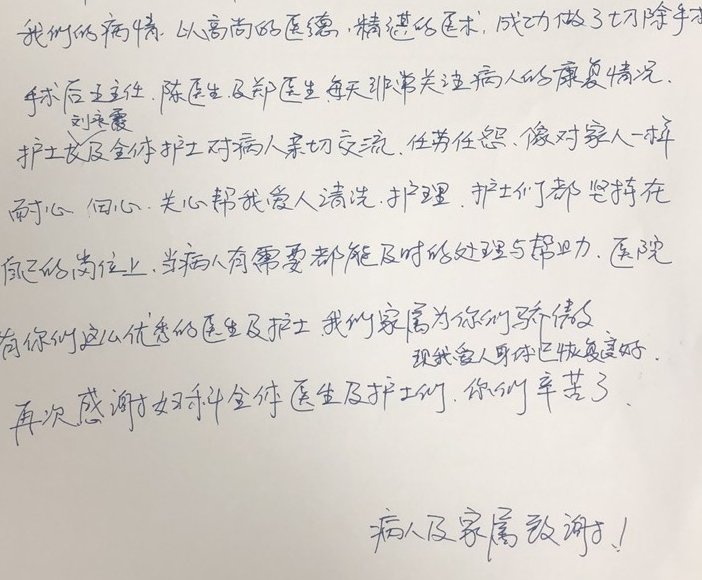 我们的病情.以高尚的医德,精湛的医术,成功做了切除手术
手术后王主任.陈医生及郑医生每天非常关注病人的康复情况.
刘采霞
护士长及全体护士对病人亲切交流.任劳任怨.像对家人一样
耐心 细心.关心帮我爱人清洗.护理.护士们都坚持在
自己的岗位上.当病人有需要都能及时的处理与帮助.医院
有你们这么优秀的医生及护士 我们家属为你们骄傲
现我爱人身体已恢复良好.
再次感谢妇科全体医生及护士们.你们辛苦了.
病人及家属致谢!